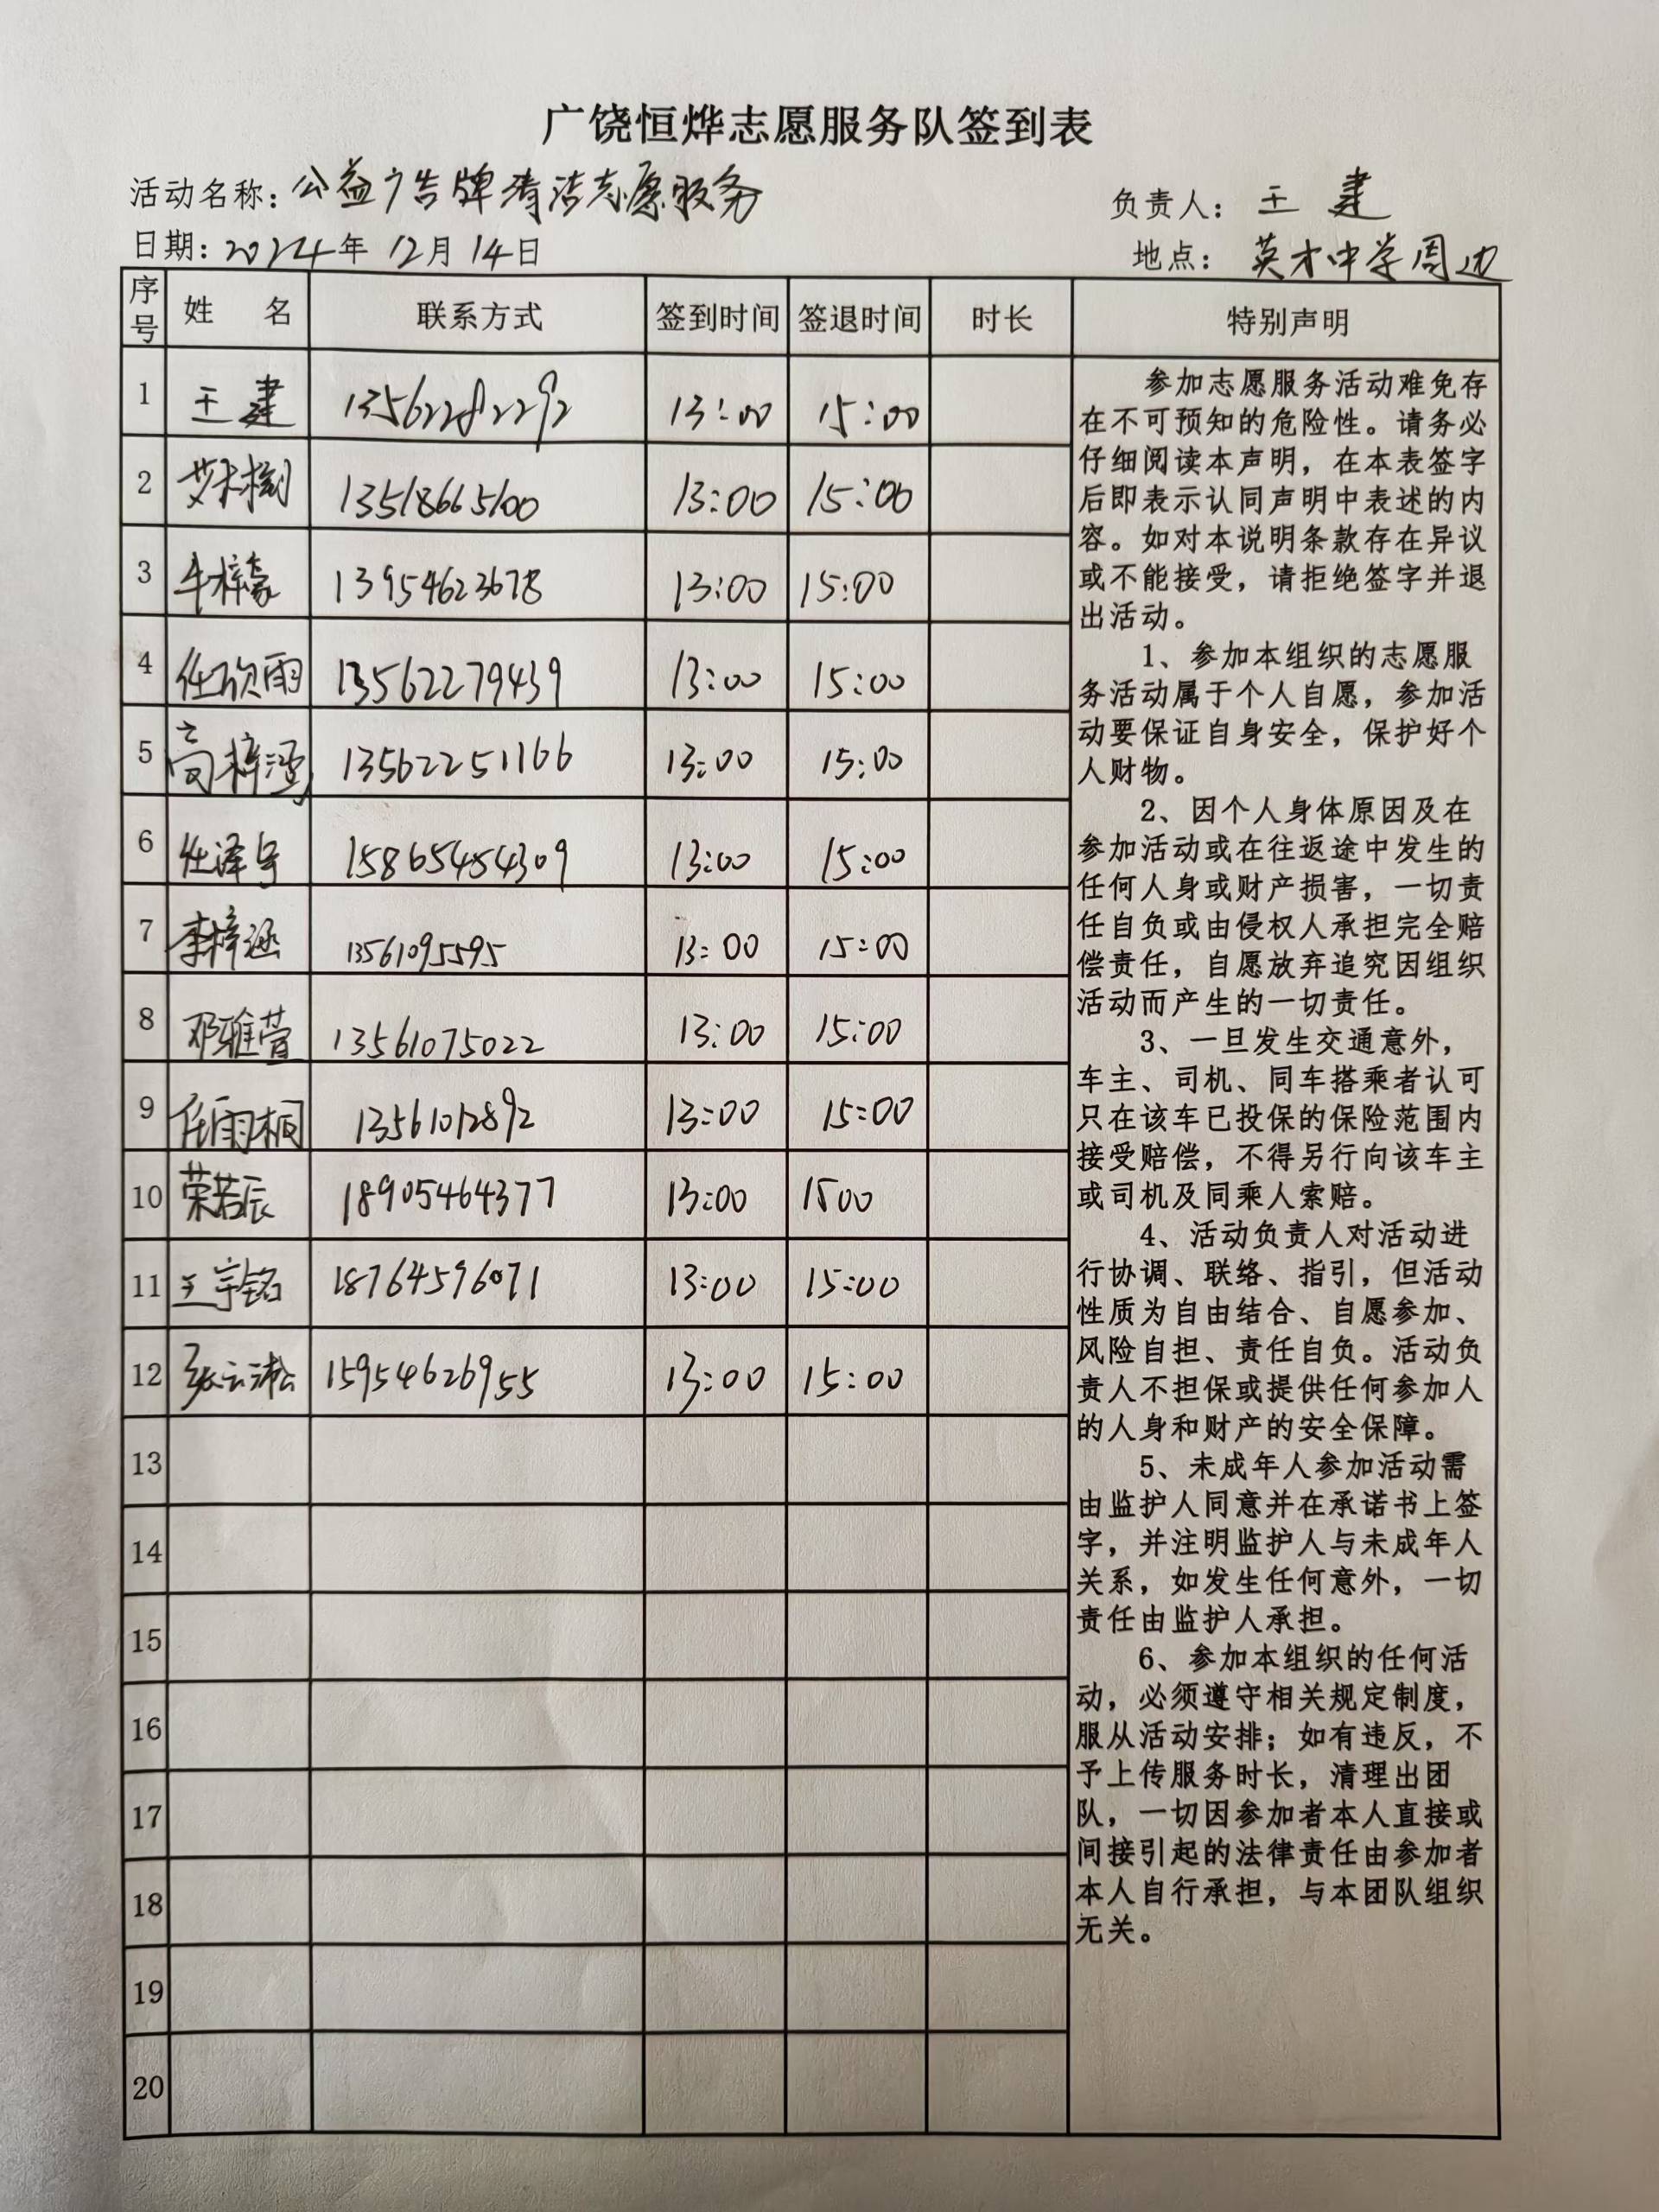 广饶恒烨志愿服务队签到表
活动名称：公益广告牌清洁志愿服务 负责人：王建
日期：2024年12月14日 地点：英才中学周边
序号 姓 名 联系方式 签到时间 签退时间 时长 特别声明
1 王建 13562282292 13:00 15:00
2 13518665100 13:00 15:00
3 牛梓豪 13954623678 13:00 15:00
4 任欣雨 13562279439 13:00 15:00
5 高梓涵 13562251166 13:00 15:00
6 任泽宇 15865454309 13:00 15:00
7 李梓涵 13561095595 13:00 15:00
8 邓雅萱 13561075022 13:00 15:00
9 任雨桐 13561012892 13:00 15:00
10 荣若辰 18905464377 13:00 1500
11 王宇铭 18764596071 13:00 15:00
12 张云淞 15954626955 13:00 15:00
13
14
15
16
17
18
19
20
参加志愿服务活动难免存
在不可预知的危险性。请务必
仔细阅读本声明，在本表签字
后即表示认同声明中表述的内
容。如对本说明条款存在异议
或不能接受，请拒绝签字并退
出活动。
1、参加本组织的志愿服
务活动属于个人自愿，参加活
动要保证自身安全，保护好个
人财物。
2、因个人身体原因及在
参加活动或在往返途中发生的
任何人身或财产损害，一切责
任自负或由侵权人承担完全赔
偿责任，自愿放弃追究因组织
活动而产生的一切责任。
3、一旦发生交通意外，
车主、司机、同车搭乘者认可
只在该车已投保的保险范围内
接受赔偿，不得另行向该车主
或司机及同乘人索赔。
4、活动负责人对活动进
行协调、联络、指引，但活动
性质为自由结合、自愿参加、
风险自担、责任自负。活动负
责人不担保或提供任何参加人
的人身和财产的安全保障。
5、未成年人参加活动需
由监护人同意并在承诺书上签
字，并注明监护人与未成年人
关系，如发生任何意外，一切
责任由监护人承担。
6、参加本组织的任何活
动，必须遵守相关规定制度，
服从活动安排；如有违反，不
予上传服务时长，清理出团
队，一切因参加者本人直接或
间接引起的法律责任由参加者
本人自行承担，与本团队组织
无关。